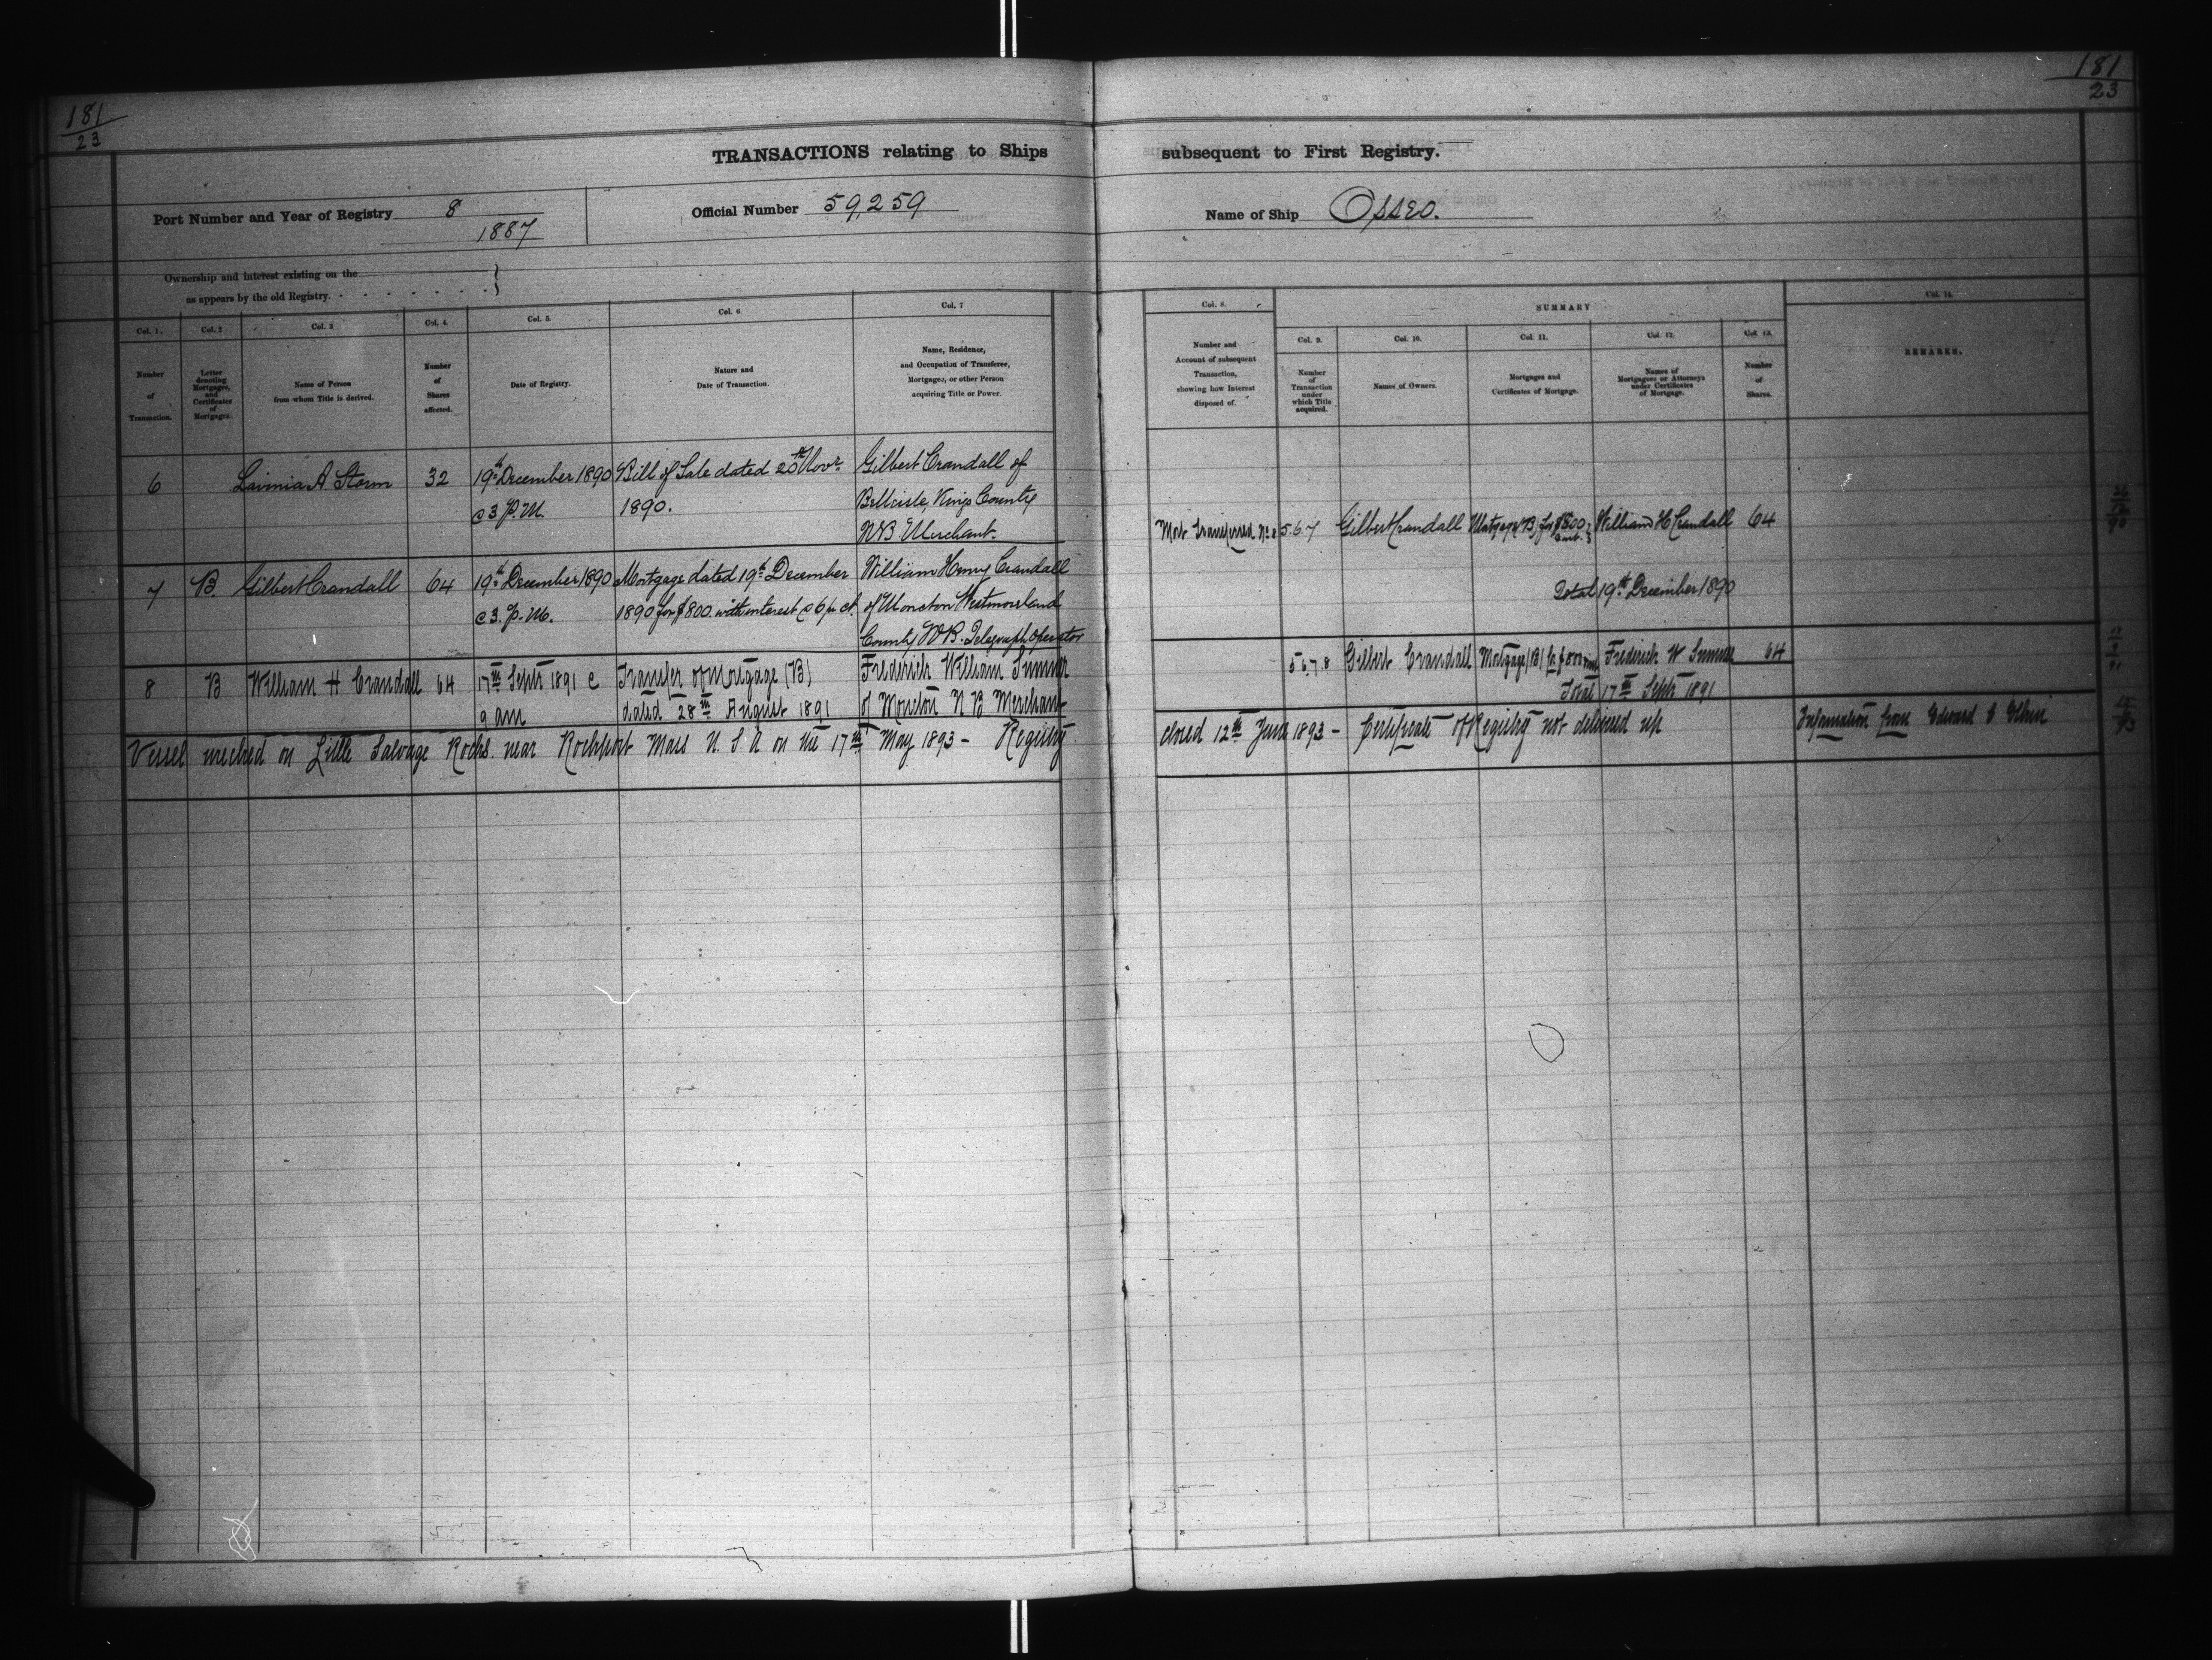 181
23
181
23
TRANSACTIONS relating to Ships subsequent to First Registry.
Port Number and Year of Registry 8
1887
Official Number 59,259
Name of Ship Osseo.
Ownership and interest existing on the
as appears by the old Registry.
Col. 1.
Number
of
Transaction.
Col. 2
Letter
denoting
Mortgages,
and
Certificates
of
Mortgages.
Col. 3
Name of Person
from whom Title is derived.
Col. 4.
Number
of
Shares
affected.
Col. 5.
Date of Registry.
Col. 6.
Nature and
Date of Transaction.
Col. 7
Name, Residence,
and Occupation of Transferee,
Mortgagee, or other Person
acquiring Title or Power.
Col. 8.
Number and
Account of subsequent
Transaction,
showing how Interest
disposed of.
SUMMARY
Col. 9.
Number
of
Transaction
under
which Title
acquired.
Col. 10.
Names of Owners.
Col. 11.
Mortgages and
Certificates of Mortgage.
Col. 12.
Names of
Mortgagees or Attorneys
under Certificates
of Mortgage.
Col. 13.
Number
of
Shares.
Col. 14.
REMARKS.
6
Lavinia A. Storm
32
19th December 1890
@ 3 P.M.
Bill of Sale dated 20th Novr
1890.
Gilbert Crandall of
Bellisle, Kings County
N.B. Merchant.
Mort Transferred No 8
5.6.7
Gilbert Crandall
Mortgage (B) for $800
William H Crandall
64
Total 19th December 1890
7
B.
Gilbert Crandall
64
19th December 1890
@ 3. P.M.
Mortgage dated 19th December
1890 for $800. with interest @ 6 pr ct.
William Henry Crandall
of Moncton Westmorland
County N.B. Telegraph Operator
8
B
William H Crandall
64
17th Septr 1891 @
9 am
Transfer of Mortgage (B)
dated 28th August 1891
Frederick William Sumner
of Moncton N B Merchant
5.6.7.8
Gilbert Crandall
Mortgage (B) for $800
Frederick W Sumner
64
Total 17th Septr 1891
Vessel wrecked on Little Salvage Rocks. near Rockport Mass U. S. A on the 17th May 1893 - Registry
closed 12th June 1893 - Certificate of Registry not delivered up
Information from Edward S